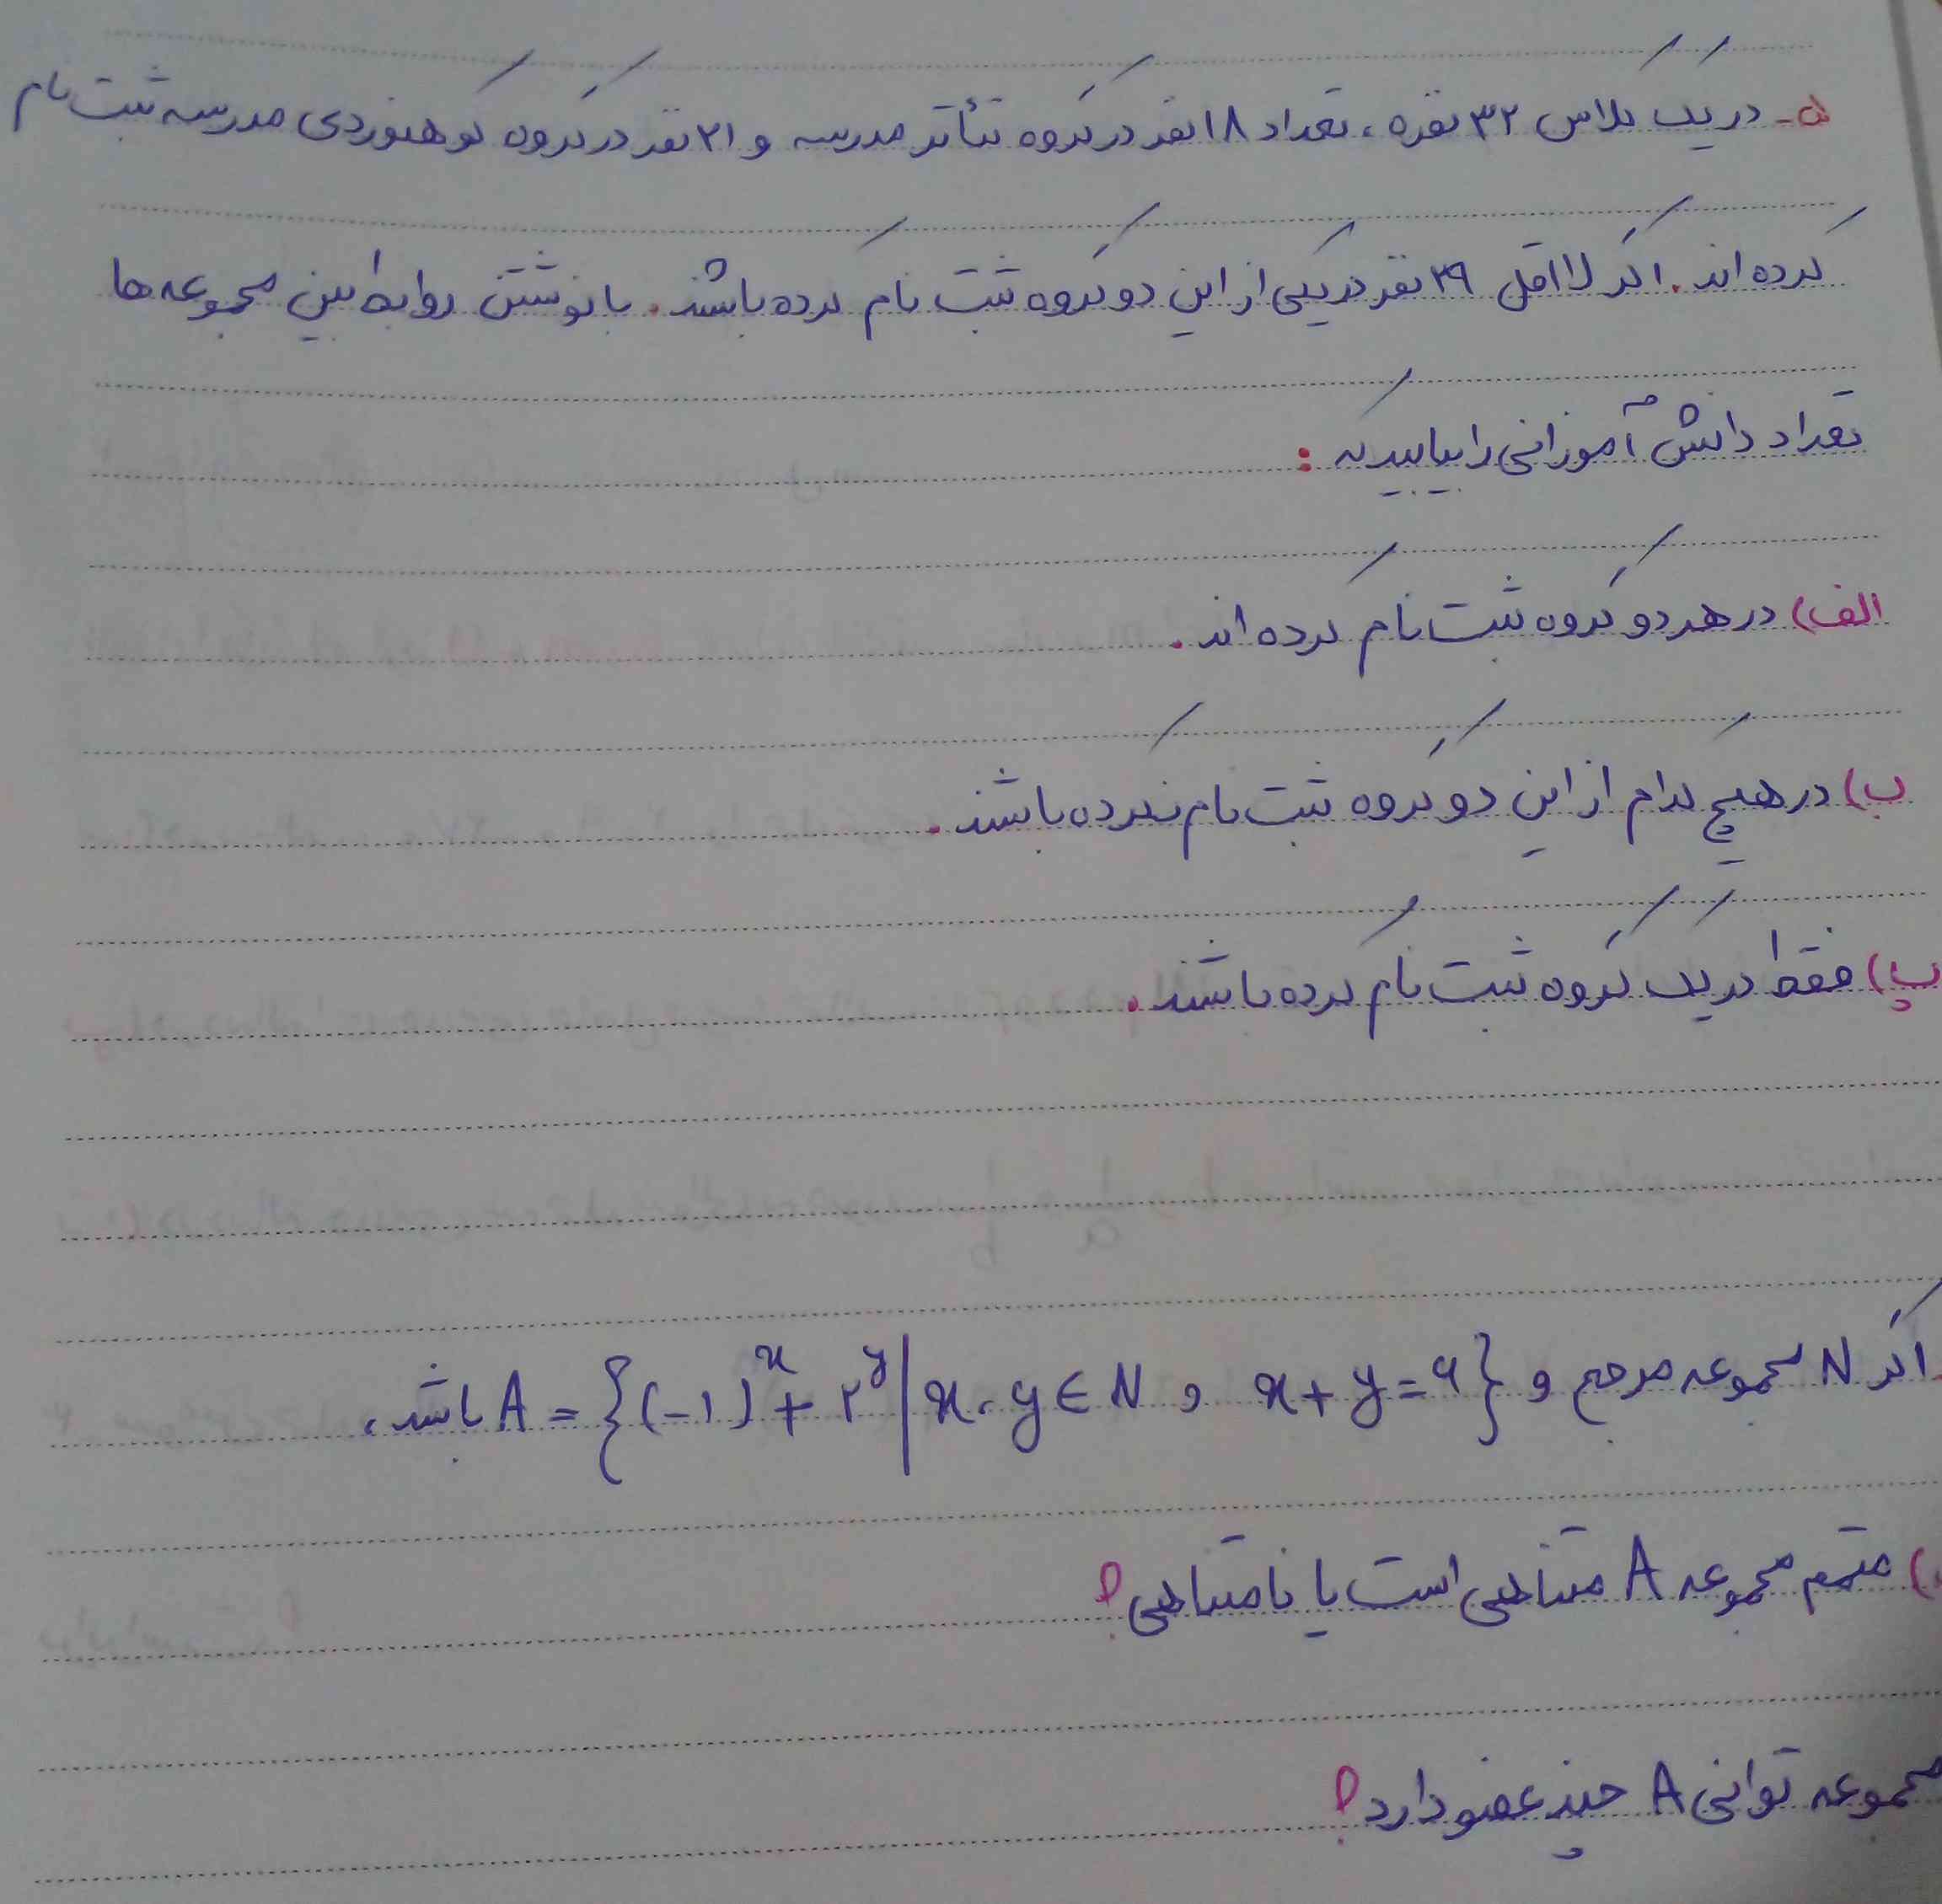 ۵- در یک کلاس ۳۲ نفره، تعداد ۱۸ نفر در گروه تئاتر مدرسه و ۲۱ نفر در گروه کوهنوردی مدرسه ثبت نام
کرده اند. اگر لااقل ۲۹ نفر در یکی از این دو گروه ثبت نام کرده باشند. با نوشتن روابط بین مجموعه ها
تعداد دانش آموزانی را بیابید که :
الف) در هر دو گروه ثبت نام کرده اند.
ب) در هیچ کدام از این دو گروه ثبت نام نکرده باشند.
پ) فقط در یک گروه ثبت نام کرده باشند.
اگر N مجموعه مرجع و A = {(-۱)^x + ۲^y | x، y ∈ N و x + y = ۶} باشد،
) متمم مجموعه A متناهی است یا نامتناهی؟
مجموعه توانی A چند عضو دارد؟